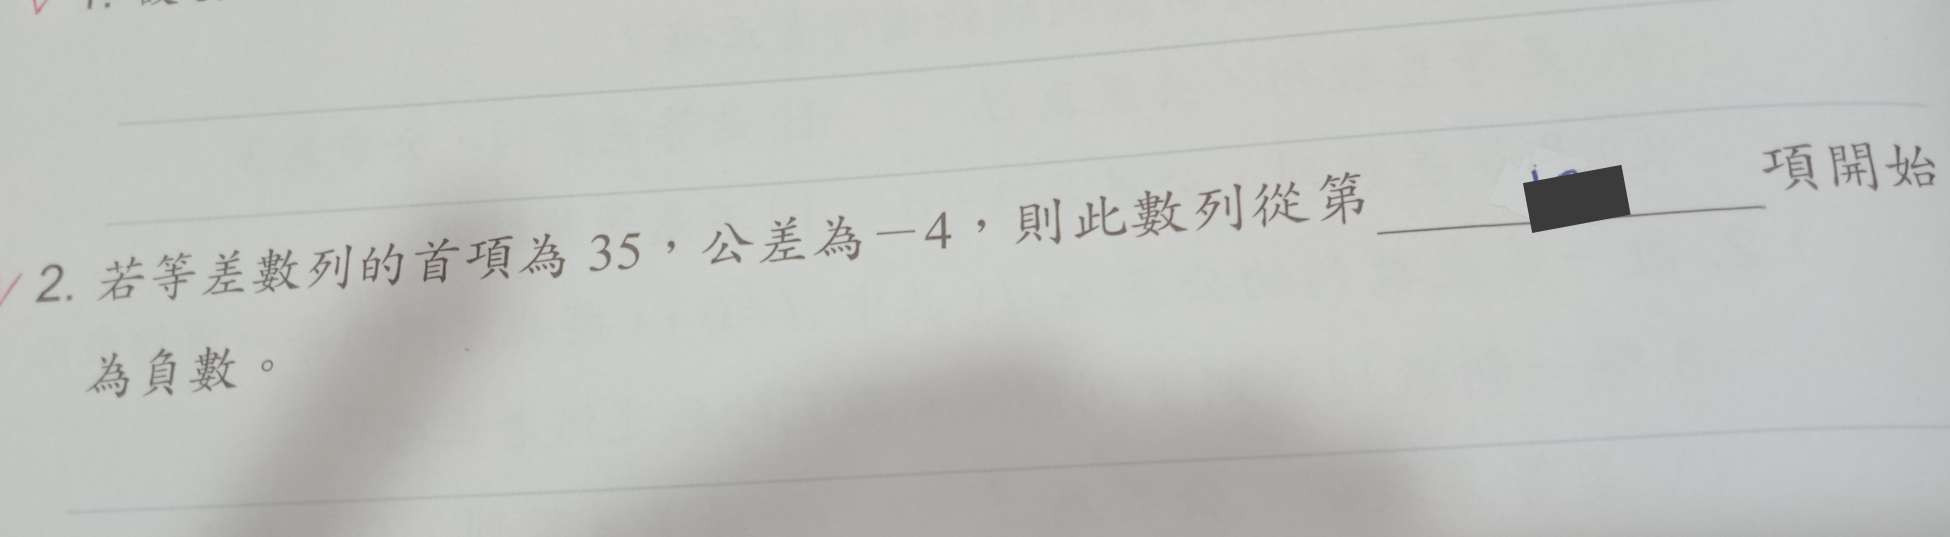 2. 若等差數列的首項為 35，公差為－4，則此數列從第______項開始
為負數。